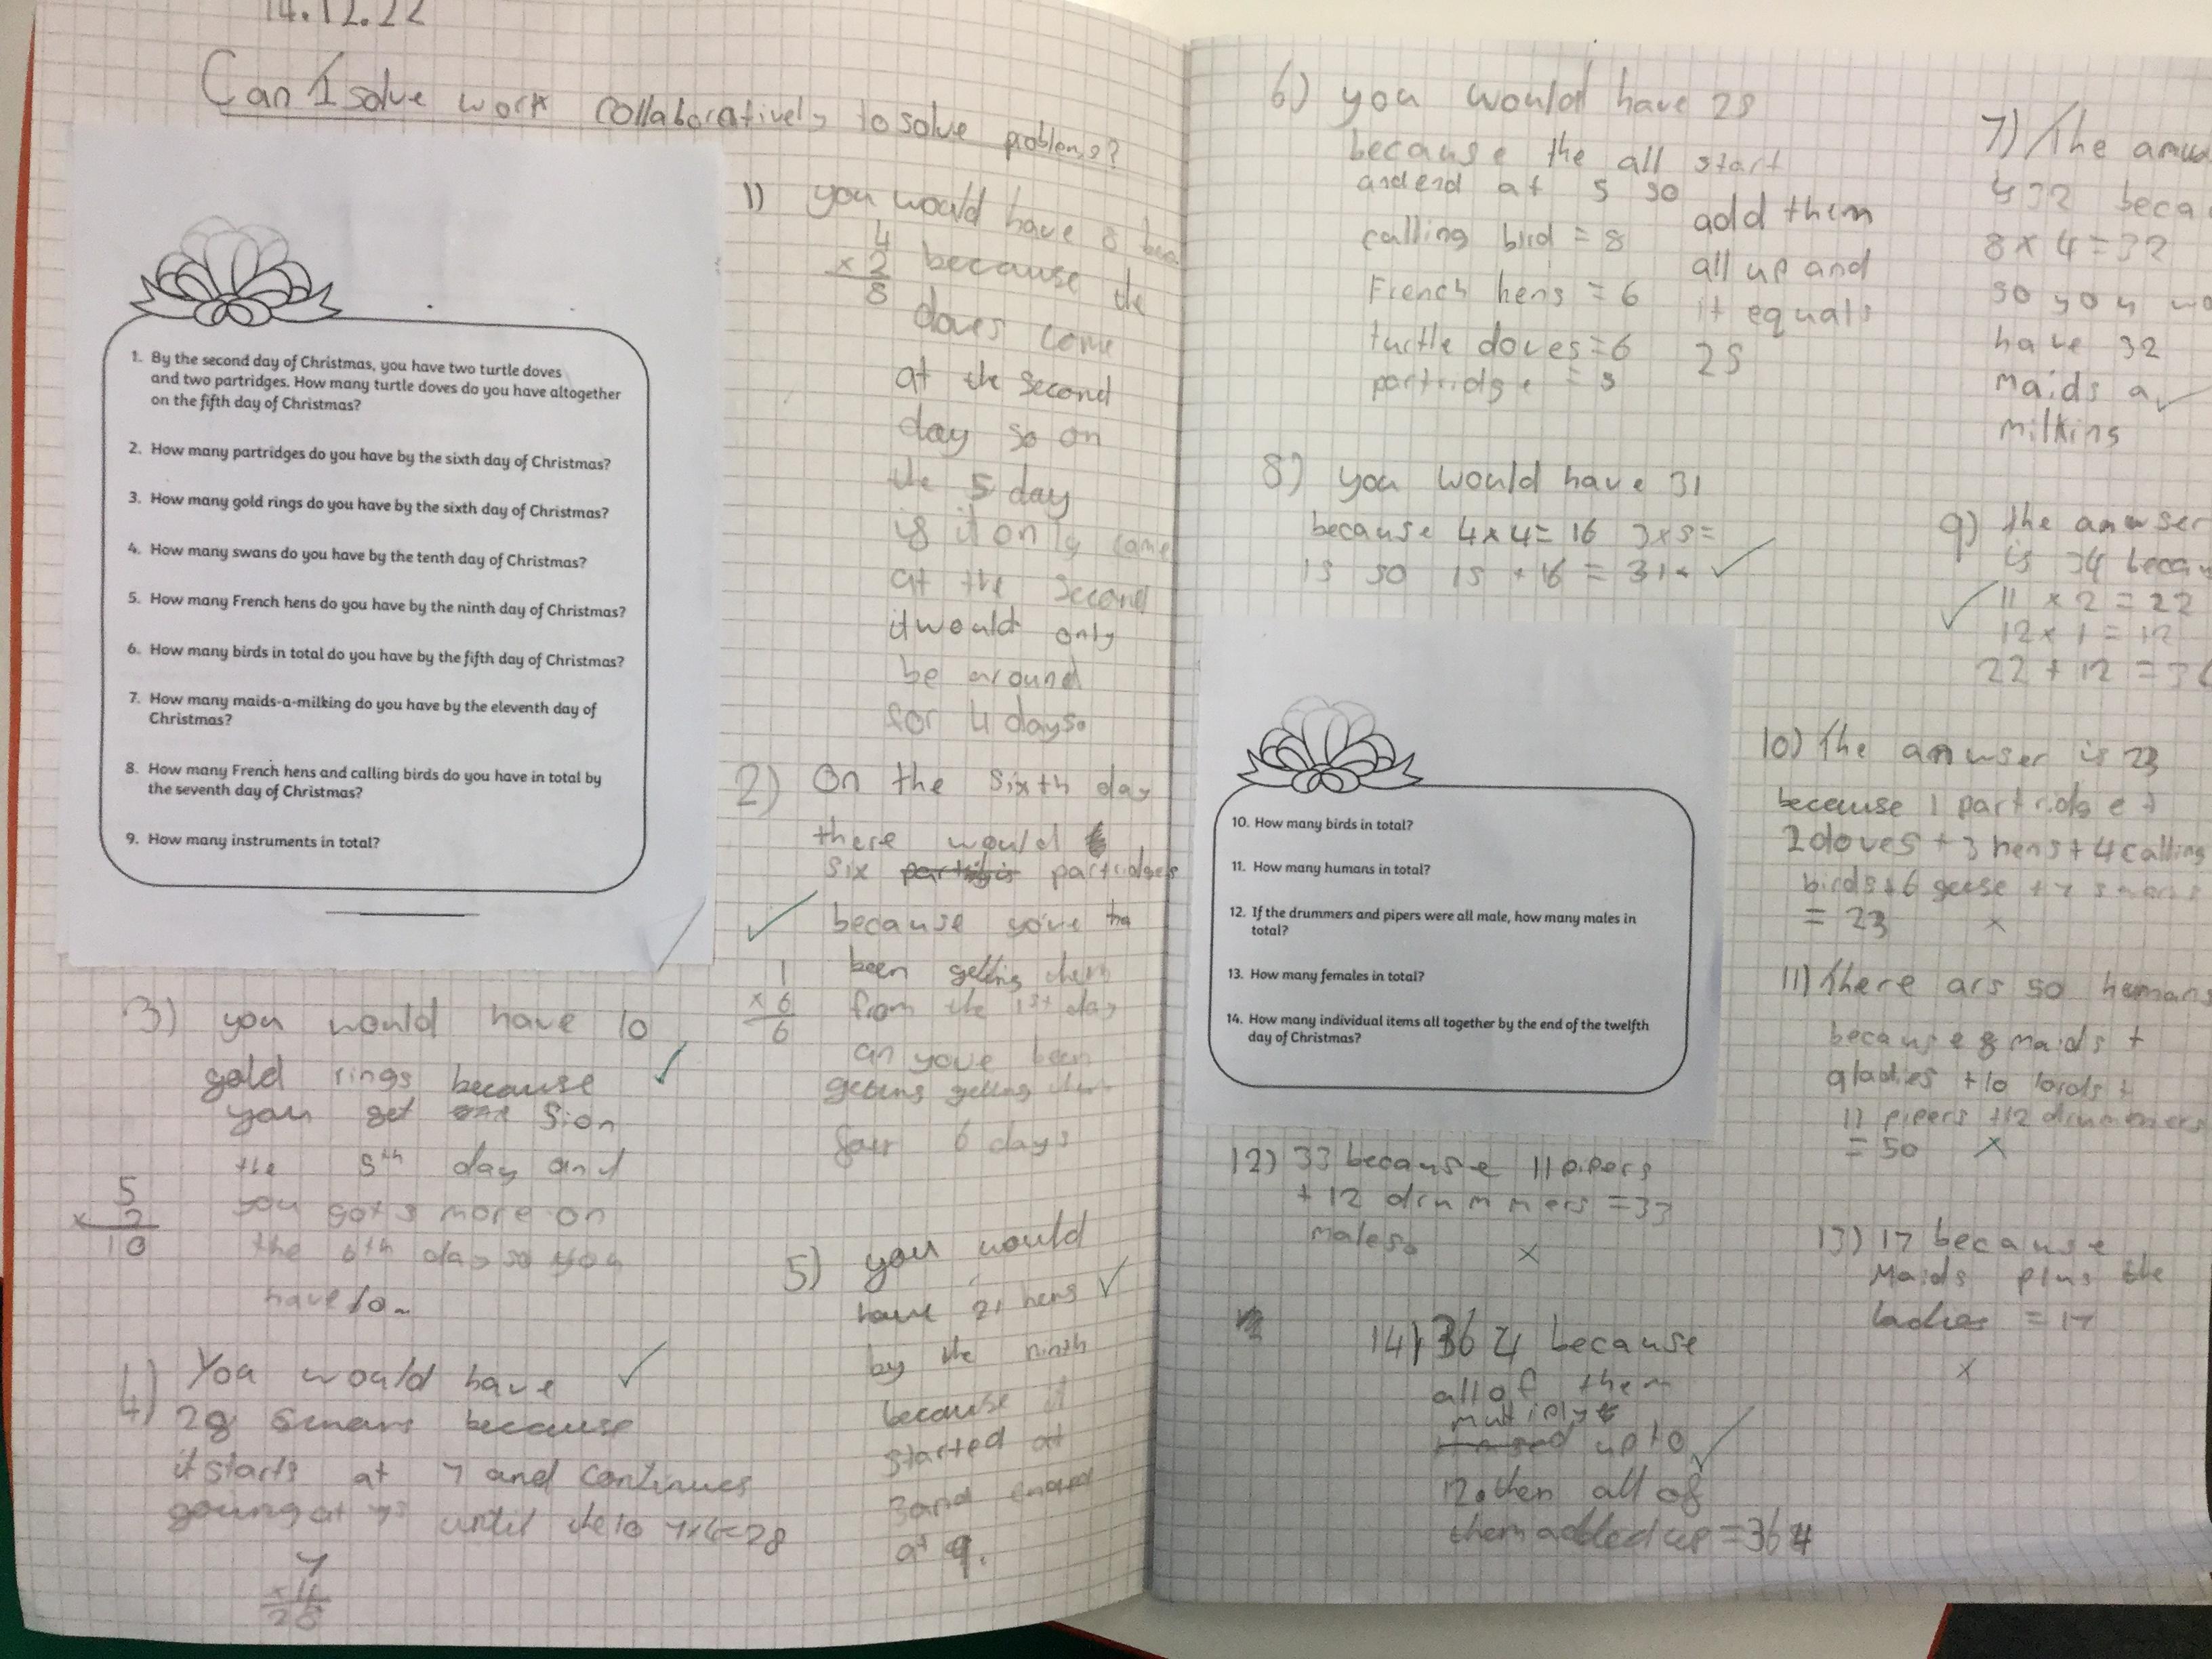 14.12.22
Can I solve work collaboratively to solve problems?
1. By the second day of Christmas, you have two turtle doves
and two partridges. How many turtle doves do you have altogether
on the fifth day of Christmas?
2. How many partridges do you have by the sixth day of Christmas?
3. How many gold rings do you have by the sixth day of Christmas?
4. How many swans do you have by the tenth day of Christmas?
5. How many French hens do you have by the ninth day of Christmas?
6. How many birds in total do you have by the fifth day of Christmas?
7. How many maids-a-milking do you have by the eleventh day of
Christmas?
8. How many French hens and calling birds do you have in total by
the seventh day of Christmas?
9. How many instruments in total?
1) you would have 8
4
× 2
8
because the
doves come
at the second
day so on
the 5 day
is it only came
at the second
it would only
be around
for 4 days.
2) On the sixth day
there would
six partridges
because you've ha
been getting them
from the 1st day
an youve been
getting them
four 6 days
1
× 6
6
3) you would have 10
gold rings because
you get 5 on
the 5th day and
you got 5 more on
the 6th day so you
have 10.
5
× 2
10
4) You would have
28 swans because
it starts at 7 and continues
going at 7s until the 10 7x4=28
7
× 4
28
5) you would
have 21 hens
by the ninth
because it
started at
3 and ended
at 9.
6) you would have 25
because the all start
and end at 5 so
calling bird = 8
French hens = 6
turtle doves = 6
partridge = 5
add them
all up and
it equals
25
7) The
432 beca
8 x 4 = 32
so you wo
have 32
maids a
milking
8) you would have 31
because 4x4=16 3x5=
15 so 15 + 16 = 31
9) the anwser
is 34 becau
11 x 2 = 22
12 x 1 = 12
22 + 12 = 34
10. How many birds in total?
11. How many humans in total?
12. If the drummers and pipers were all male, how many males in
total?
13. How many females in total?
14. How many individual items all together by the end of the twelfth
day of Christmas?
10) The anwser is 23
because 1 partridge +
2 doves + 3 hens + 4 calling
birds + 6 geese + 7 swans
= 23
11) There are 50 humans
because 8 maids +
9 ladies + 10 lords +
11 pipers + 12 drummers
= 50
12) 33 because 11 pipers
+ 12 drummers = 33
males.
13) 17 because
Maids plus the
ladies = 17
14) 364 because
all of them
multiply
up to
12. then all of
them added up = 364